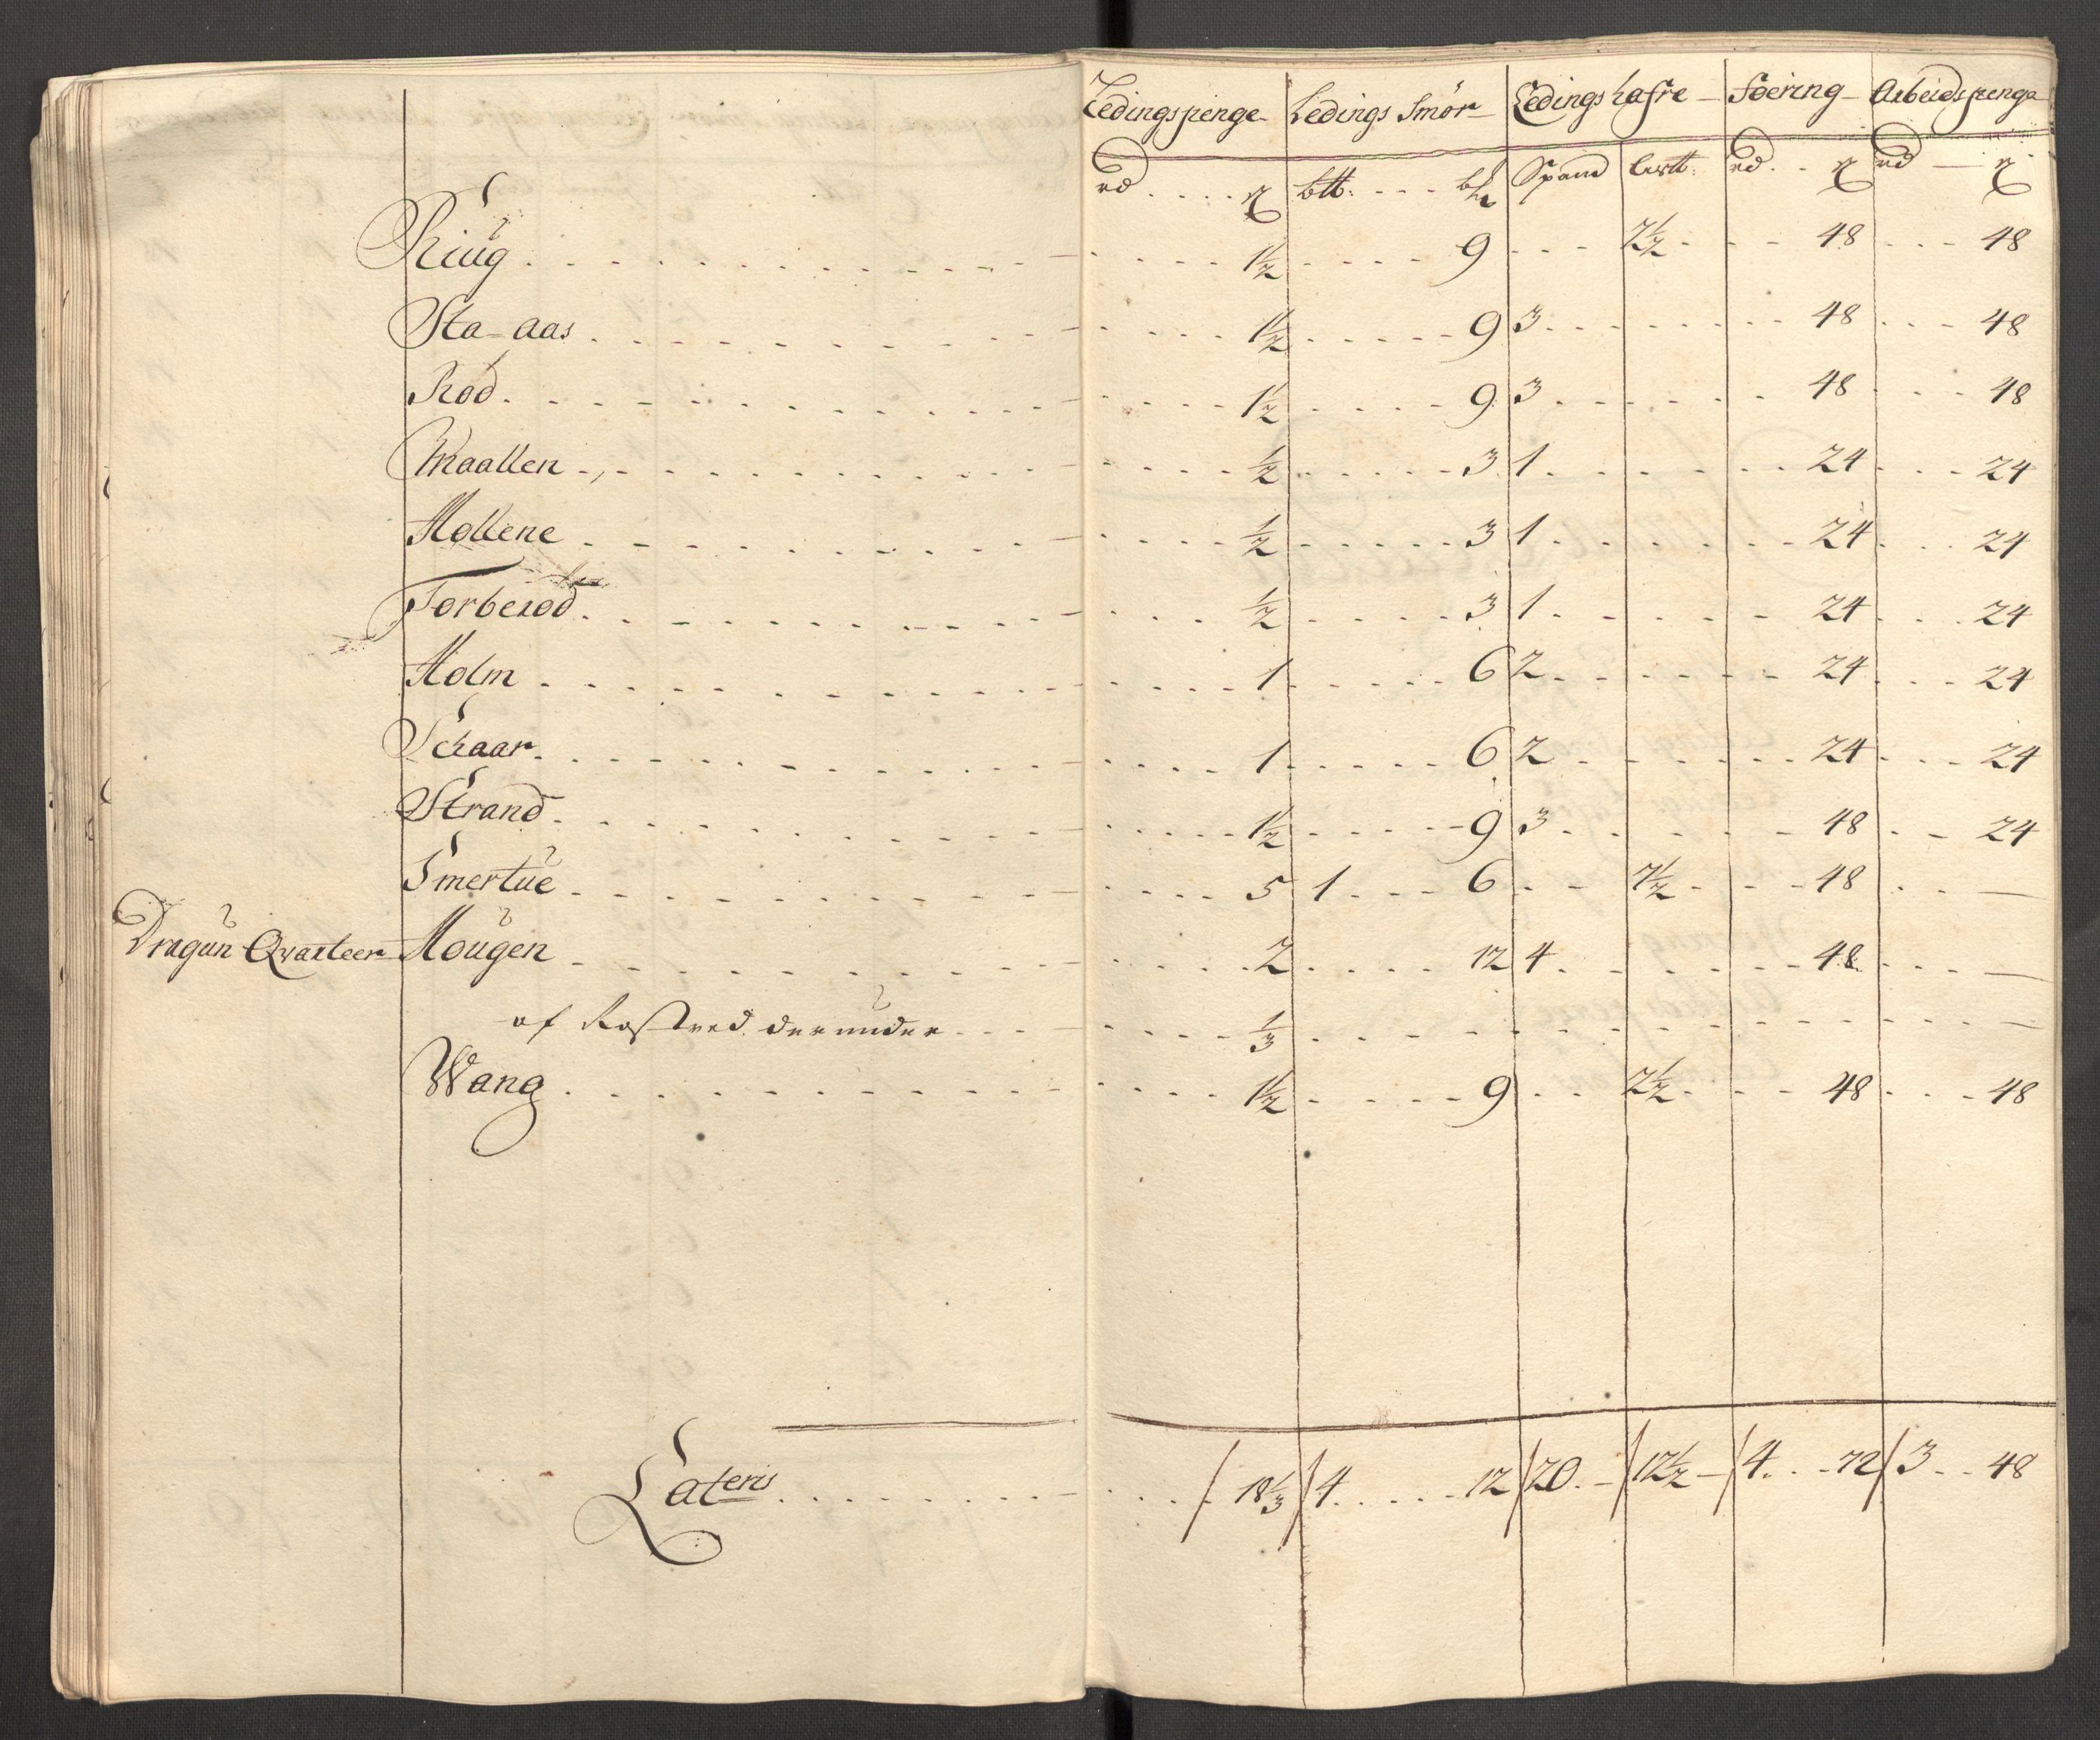 Ledingspenge Ledings Smör Ledings hafre Foering Arbeidspenge
rd ß btt: Spand rd ß rd ß
Riug 1½ 9 2½ 48 48
Sta-aas 1½ 9 3 48 48
Röd 1½ 9 3 48 48
Maallen ½ 3 1 24 24
Hollene ½ 3 1 24 24
Torberöd ½ 3 1 24 24
Holm 1 6 2 24 24
Schaar 1 6 2 24 24
Strand 1½ 9 3 48 24
Smertue 5 1 6 7½ 48 —
Dragun Qvarteer Hougen 2 12 4 48 —
af Rostved derunder ⅓ —
Wang 1½ 9 2½ 48 48
Lateris 18⅓ 4 12 20 12½ 4 72 3 48